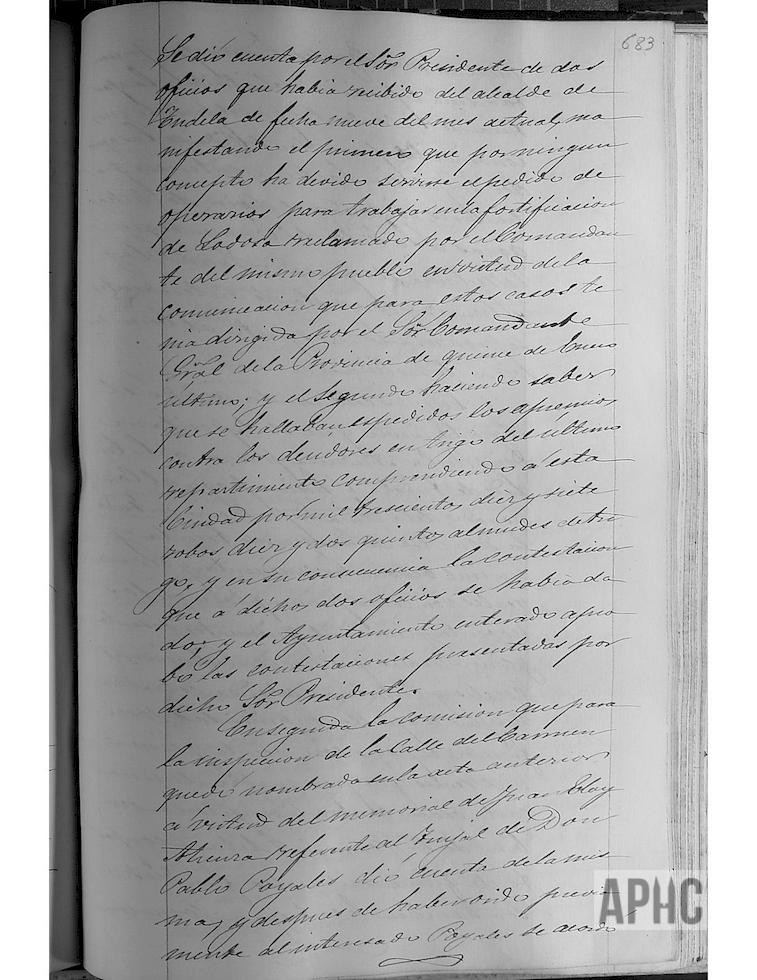 683
Se dió cuenta por el Sor. Presidente de dos
oficios que habia recibido del alcalde de
Tudela de fecha nueve del mes actual, ma
nifestando el primero que por ningun
concepto ha devido servirse el pedido de
operarios para trabajar en la fortificacion
de Lodosa reclamado por el Comandan
te del mismo pueblo en virtud de la
comunicacion que para estos casos te
nia dirigida por el Sor. Comandante
Gral de la Provincia de quince de Enero
último; y el segundo haciendo saber
que se hallaban espedidos los apremios
contra los deudores en trigo del último
repartimiento comprendiendo a esta
Ciudad por mil trescientos diez y siete
robos diez y dos quintos almudes de tri
go, y en su consecuencia la contestacion
que a dichos dos oficios se habia da
do; y el Ayuntamiento enterado apro
bó las contestaciones presentadas por
dicho Sor. Presidente.
Enseguida la comision que para
la inspeccion de la Calle del Carmen
quedó nombrada en la acta anterior
a virtud del memorial de Juan Eloy
Atienza referente al de Don
Pablo Poyales dió cuenta de la mis
ma, y despues de haber oido previa
mente al interesado Poyales se acordó
APHC